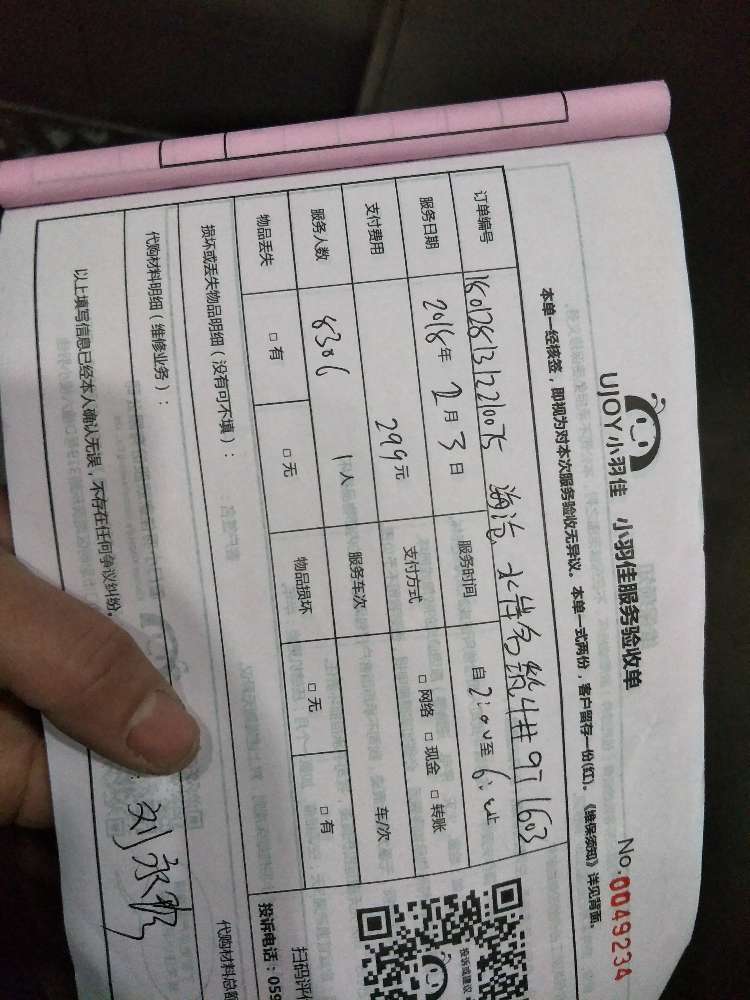 UJOY小羽佳 小羽佳服务验收单
No.0049234
本单一经核签，即视为对本次服务验收无异议。本单一式两份，客户留存一份(红)。《维保须知》详见背面。
订单编号 1801281312210075 海沧 水岸名筑4# 971603
服务日期 2018年2月3日 服务时间 自2:00至6:00止
支付费用 299元 支付方式 □网络 □现金 □转账
服务人数 8306 1人 服务车次 车/次
物品丢失 □有 □无 物品损坏 □无 □有
损坏或丢失物品明细（没有可不填）：
代购材料明细（维修业务）： 代购材料总
以上填写信息已经本人确认无误，不存在任何争议纠纷。
刘永
投诉或建议
扫码评
投诉电话：059